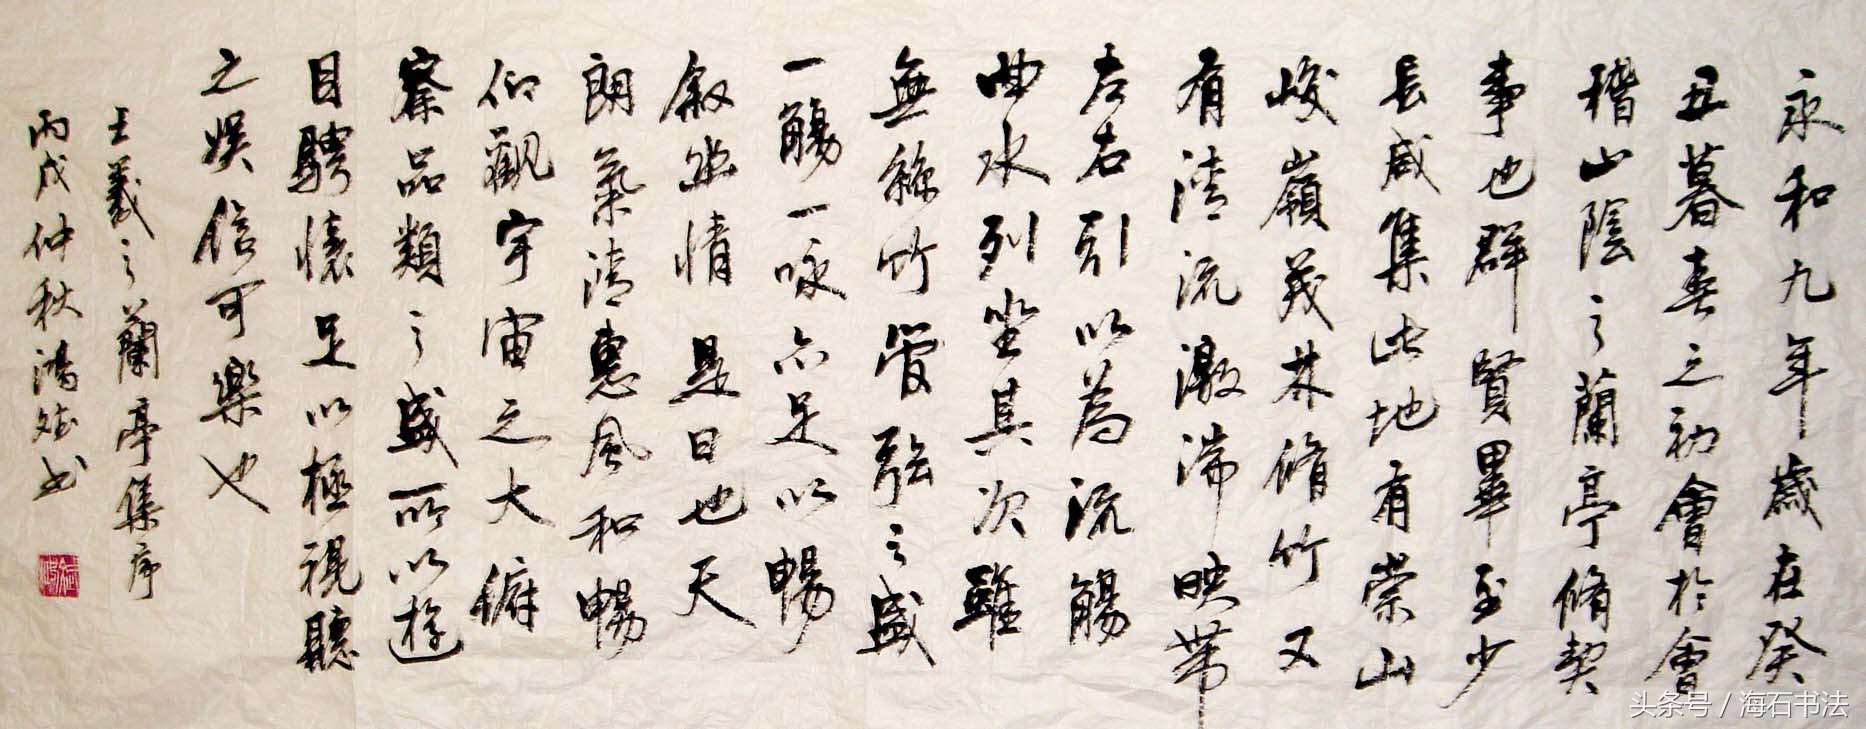 永和九年歲在癸
丑暮春之初會於會
稽山陰之蘭亭脩契
事也群賢畢至少
長咸集此地有崇山
峻嶺茂林脩竹又
有清流激湍映帶
左右引以為流觴
曲水列坐其次雖
無絲竹管弦之盛
一觴一詠亦足以暢
敘幽情是日也天
朗氣清惠風和暢
仰觀宇宙之大俯
察品類之盛所以遊
目騁懷足以極視聽
之娛信可樂也
王羲之蘭亭集序
丙戌仲秋鴻书
头条号 / 海石书法